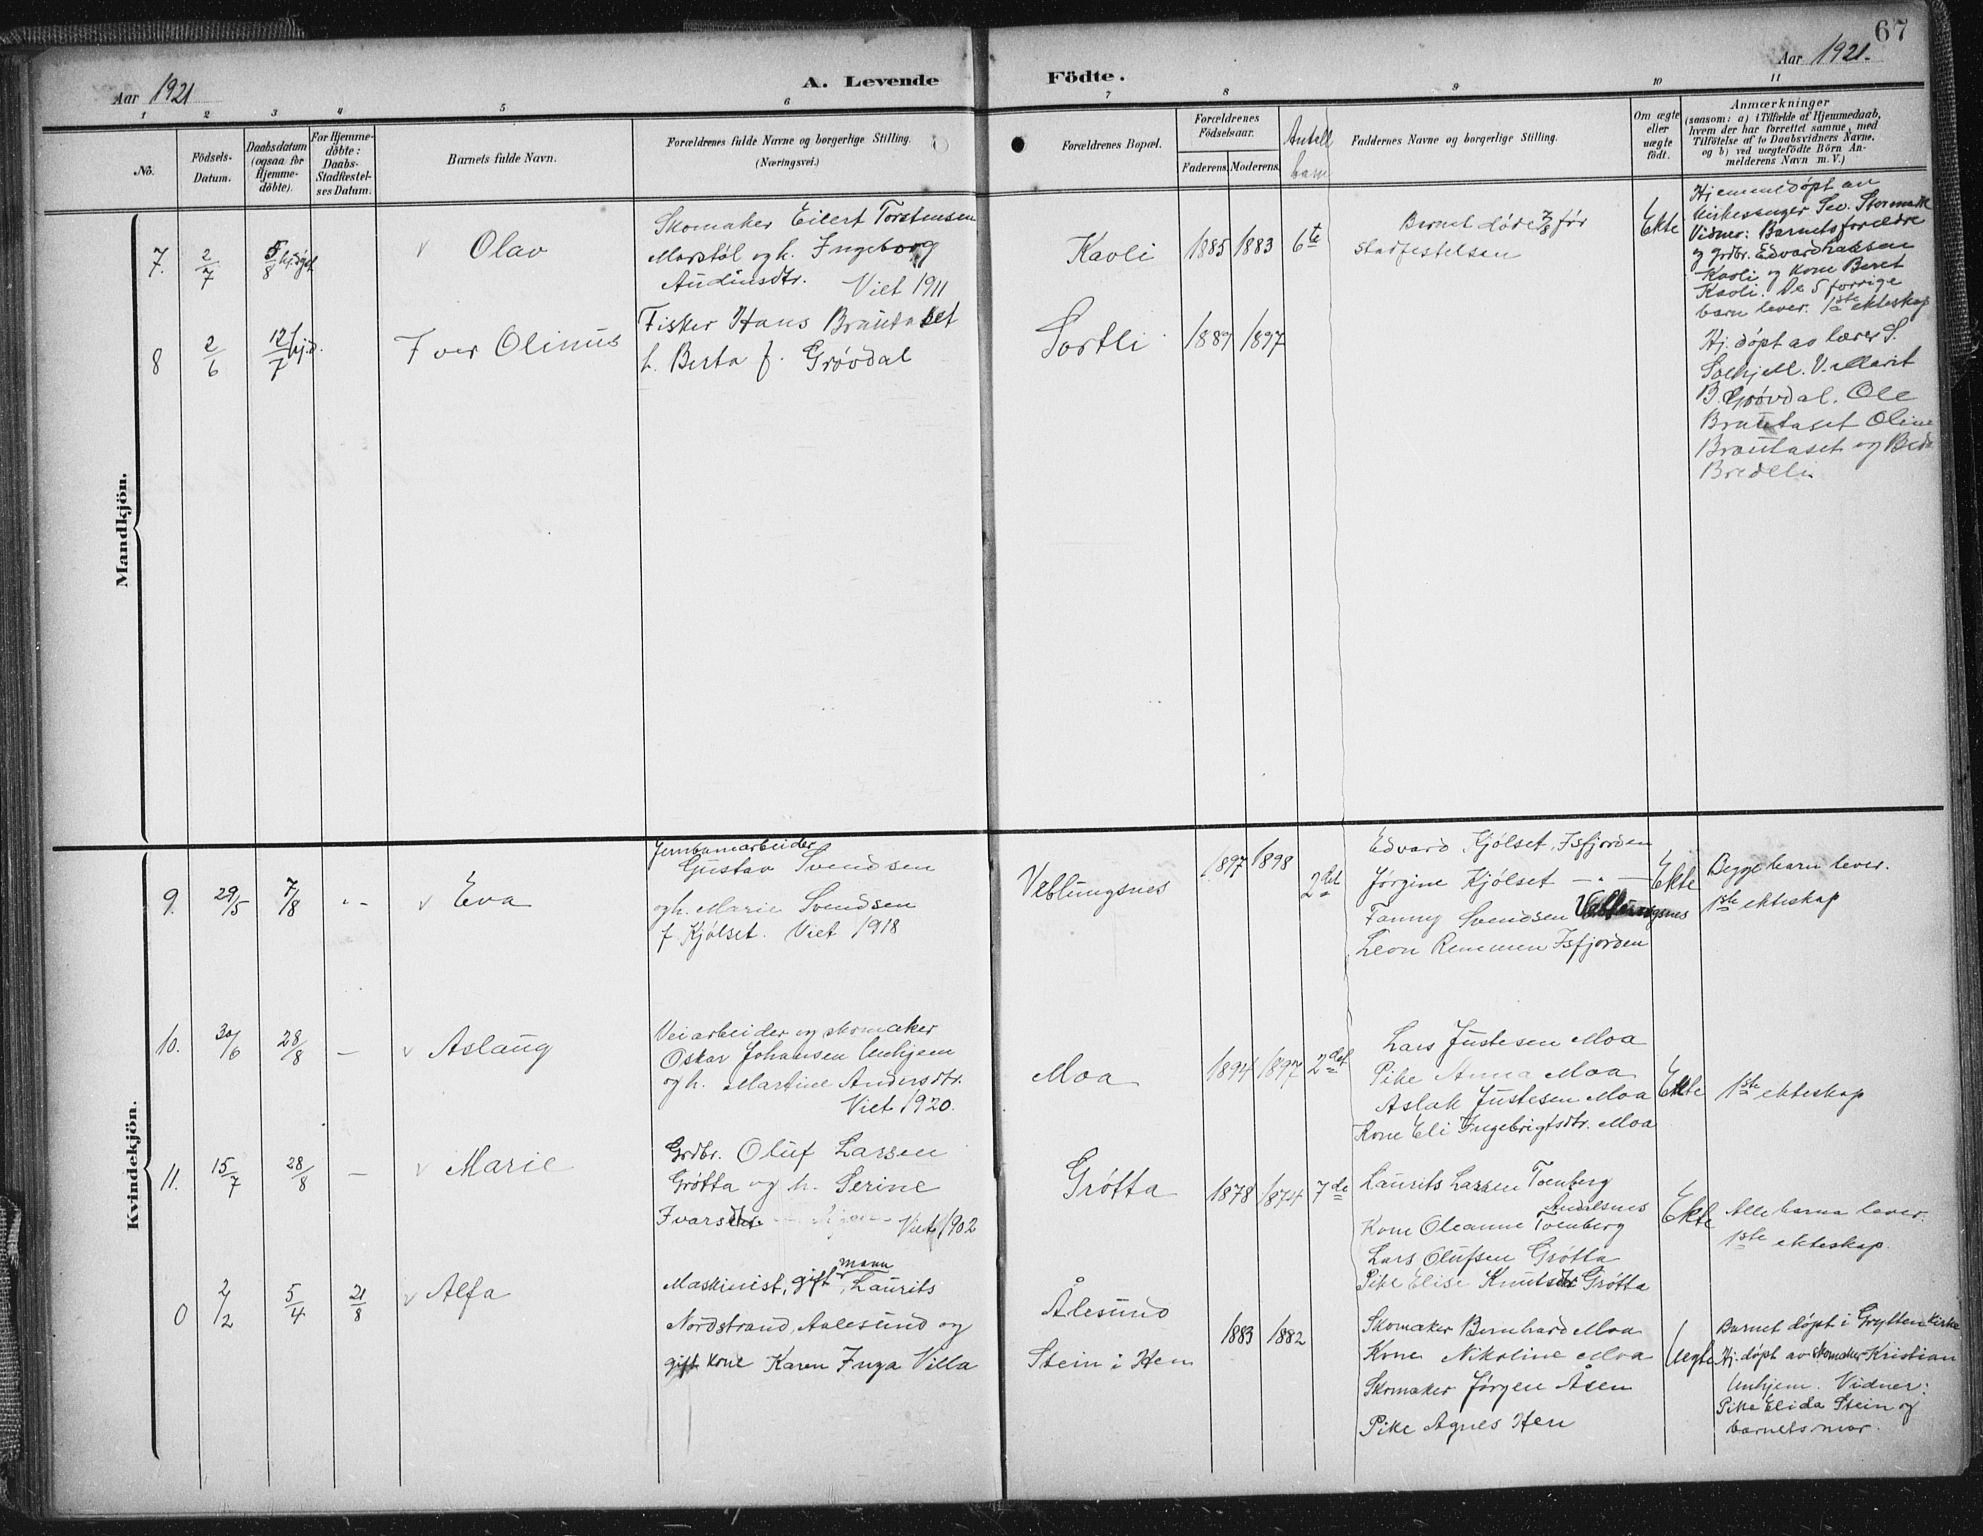 67
Aar 1921
A. Levende
Födte.
Aar 1921.
1 2 3 4 5 6 7 8 9 10 11
No.
Födsels-
Datum.
Daabsdatum
(ogsaa for
Hjemme-
döbte).
For Hjemme-
döbte:
Daabs-
Stadfestel-
ses Datum.
Barnets fulde Navn.
Forældrenes fulde Navne og borgerlige Stilling.
(Næringsvei.)
Forældrenes Bopæl.
Forældrenes
Födselsaar.
Faderens. Moderens.
Antall
barn
Faddernes Navne og borgerlige Stilling.
Om ægte
eller
uægte
födt.
Anmærkninger
(saasom: a) i Tilfælde af Hjemmedaab,
hvem der har forrettet samme, med
Tilföielse af to Daabsvidners Navne,
og b) ved uægtefödte Börn An-
melderens Navn m. V.)
Mandkjön.
7.
2/7
5/8 hj.døpt
v Olav
Skomaker Eilert Torstensen
Marstøl og h. Ingeborg
Audinsdtr. Viet 1911
Kavli
1885 1883 6te
Barnet døde 7/8 før
stadfestelsen
Ekte
Hjemmedøpt av
kirkesanger Sev. Stormolk
Vidner: Barnets forældre
og grdbr. Edvard Larsen
Kavli og kone Beret
Kavli. De 5 forrige
barn lever. 1ste ekteskap
8
2/6
12/7 hj.d.
Iver Olinus
Fisker Hans Brautaset
h. Berta f. Grøvdal
Sortli
1889 1897
Hj. døpt av lærer S.
Solhjell. V. Marit
B. Grøvdal. Ole
Brautaset Oline
Brautaset og
Bredeli
Kvindekjön.
9.
29/5
7/8
- -
v Eva
Jernbanearbeider
Gustav Svendsen
og h. Marie Svendsen
f. Kjølset. Viet 1918
Veblungsnes
1897 1898
2det
Edvard Kjølset, Isfjorden
Jørgine Kjølset — " —
Fanny Svendsen Veblungsnes
Leon Remmen Isfjorden
Ekte
Begge barn lever.
1ste ekteskap
10.
30/6
28/8
—
v Aslaug
Veiarbeider og skomaker
Oskar Johansen Unhjem
og h. Martine Andersdtr.
Viet 1920.
Moa
1894 1897 2det
Lars Justesen Moa
Pike Anna Moa
Aslak Justesen Moa
Kone Eli Ingebrigtsdtr. Moa
Ekte
1ste ekteskap
11.
15/7
28/8
—
v Marie
Grdbr. Oluf Larsen
Grøtta og h. Serine
Ivarsdtr. Viet 1902
Grøtta
1878 1874 7de
Laurits Larsen Tomberg
Andalsnes
Kone Oleanne Tomberg
Lars Olufsen Grøtta
Pike Elise Knutsdtr. Grøtta
Ekte
Alle barna lever.
1ste ekteskap.
0
2/2
5/4
21/8
v Alfa
Maskinist, gift mann, Laurits
Nordstrand, Aalesund og
gift kone Karen Inga Villa
Ålesund
Stein i Hen
1883 1882
Skomaker Bernhard Moa
Kone Nikoline Moa
Skomaker Jørgen Åsen
Pike Agnes Hen
Uegte
Barnet døpt i Grytten kirke
Hj. døpt av skomaker Kristian
Unhjem. Vidner:
Pike Elida Stein og
barnets mor.